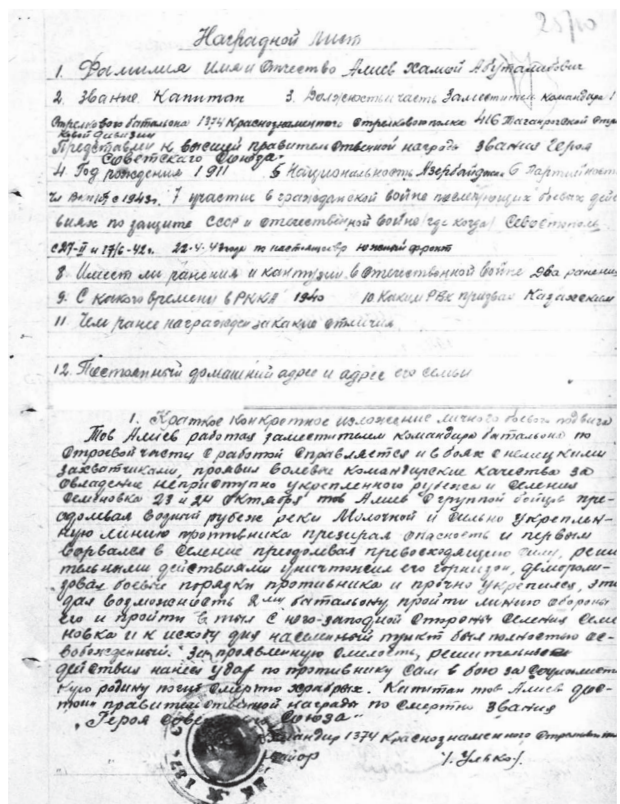 25/10
Наградной лист
1. Фамилия Имя и Отчество Алиев Хамой Абуталибович
2. Звание Капитан 3. Должность и часть Заместител командира 1
Стрелкового баталона 1374 Краснознаменного Стрелкового полка 416 Таганрогской Стрел
ковой Дивизии
Представлен к высшей правителственной награде звания Героя
Советского Союза.
4 Год рождения 1911 5 Националность Азербайджан. 6 Партийность
Чл. ВКП(б) с 1943г. 7 участие в гражданской войне последующих боевых дейс
виях по защите СССР и отечественной войне (где когда) Севостополь
с 27-II и 17/6-42г. 22.4.43 года по настоящее вр Южный фронт
8. Имеет ли ранения и кантузии в Отечественной Войне Два ранения
9. С какого времени в РККА 1940 10 Каким РВК призван Казахским
11 Чем ранее награжден за какие отличия
12. Постоянный домашний адрес и адрес его семьи
1. Краткое конкретное изложение личного боевого подвига
Тов Алиев работая заместителем командира баталона по
Строевой части с работой справляется и в боях с немецкими
захватчиками, проявил волевые командирские качества за
овладение неприступно укрепленного рубежа и селения
Семеновка 23 и 24 Октября тов Алиев с группой бойцов пре-
одолевая водный рубеж реки Молочной и сильно укреплен-
ную линию противника презирая опасность и первым
ворвался в селение приодолевая превосходящую силу, реши
тельными действиями уничтожил его гарнизон, дэморали-
зовал боевые порядки противника и прочно укрепился, эти
дал возможность 2му баталъону пройти линию обороны
его и пройти в тыл с юго-западной стороны селения Семе
новка и к исходу дня населенный пункт был полностью ос-
вобожденный. За проявленную смелость, решительные
действия нанес удар по противнику Сам в бою за социалисти
кую родину погиб смертю храбрых. Капитан тов Алиев дос-
тоин правителственной награды по смертно звания
„Героя Советского Союза"
Командир 1374 Краснознаменного Стрелкового
Майор /. Улько/.